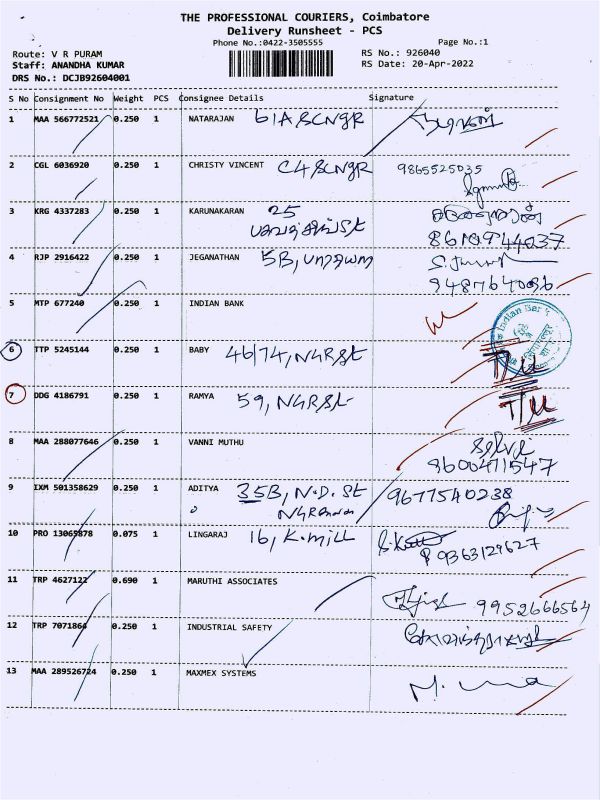 THE PROFESSIONAL COURIERS, Coimbatore
Delivery Runsheet - PCS
Phone No.:0422-3505555
Page No.:1
Route: V R PURAM
RS No.: 926040
Staff: ANANDHA KUMAR
RS Date: 20-Apr-2022
DRS No.: DCJB92604001
S No Consignment No Weight PCS Consignee Details Signature
1 MAA 566772521 0.250 1 NATARAJAN 61A SCNGR
2 CGL 6036920 0.250 1 CHRISTY VINCENT C4 SCNGR 9865525035
3 KRG 4337283 0.250 1 KARUNAKARAN 25
4 RJP 2916422 0.250 1 JEGANATHAN 5B,
5 MTP 677240 0.250 1 INDIAN BANK
6 TTP 5245144 0.250 1 BABY 46/74, NGR St
7 DDG 4186791 0.250 1 RAMYA 59, NGR St
8 MAA 288077646 0.250 1 VANNI MUTHU Selvi
9600411547
9 IXM 501358629 0.250 1 ADITYA 35B, N.D. St 9677540238
10 PRO 13065878 0.075 1 LINGARAJ 16, K.mill
9363129627
11 TRP 4627122 0.690 1 MARUTHI ASSOCIATES
9952666564
12 TRP 7071864 0.250 1 INDUSTRIAL SAFETY
13 MAA 289526724 0.250 1 MAXMEX SYSTEMS